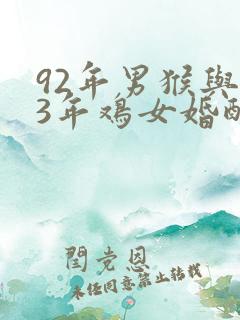 92年男猴与
3年鸡女婚配
闫党恩
未经同意禁止转载